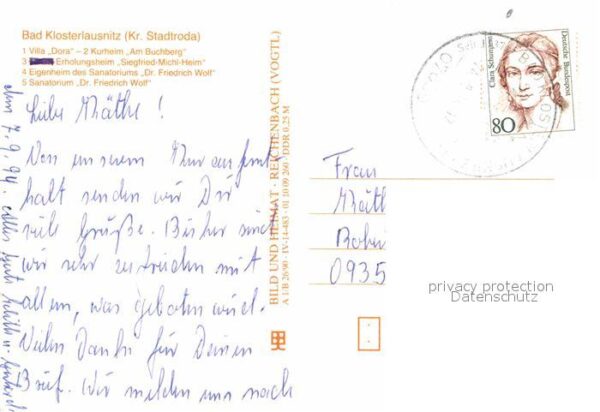 Bad Klosterlausnitz (Kr. Stadtroda)
1 Villa „Dora“ – 2 Kurheim „Am Buchberg“
3 Erholungsheim „Siegfried-Michl-Heim“
4 Eigenheim des Sanatoriums „Dr. Friedrich Wolf“
5 Sanatorium „Dr. Friedrich Wolf“
den 7.9.94.
Liebe Käthe!
Von unserem Kuraufent
halt senden wir Dir
viele Grüße. Bisher sind
wir sehr zufrieden mit
allem, was geboten wird.
Vielen Dank für Deinen
Brief. Wir melden uns noch
alles Gute
BILD UND HEIMAT · REICHENBACH (VOGTL)
A 1/B 26/90 · IV-14-483 · 01 10 09 260 · DDR 0,25 M
Clara Schumann
Deutsche Bundespost
80
Frau
0935
privacy protection
Datenschutz